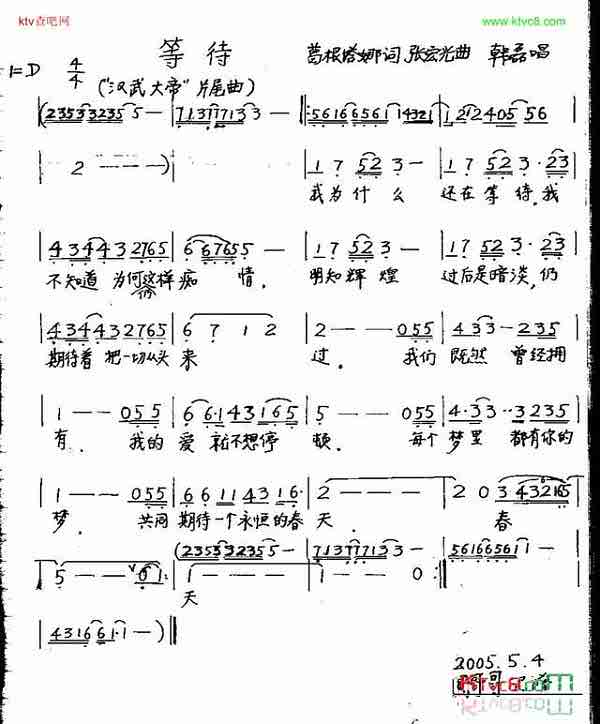 ktv查吧网
www.ktvc8.com
等待
葛根塔娜词 张宏光曲 韩磊唱
1=D 4/4
("汉武大帝"片尾曲)
(2353323 5 5 - | 7137771 3 3 - |: 56166561 14321 | 1 2 12405 56
2 - - - ) | 1 7 52 3 - | 1 7 52 3 · 23
我为什么 还在等待,我
434432765 | 6 6765 5 - | 1 7 52 3 - | 1 7 52 3 · 23
不知道 为何这样痴 情. 明知辉煌 过后是暗淡,仍
434432765 | 6 7 1 2 | 2 - - 055 | 4 33 - 235
期待着 把一切从头 来 过. 我们 既然 曾经拥
1 - - 055 | 6 6·143 165 | 5 - - 055 | 4·33 ·· 3235
有. 我的 爱 就不想停 顿. 每个 梦里 都有你的
1 - - 055 | 6 6 11 43 16· | 2 - - - | 2 0 3 432165
梦. 共同 期待一个永恒的春 天. 春
(2353323 5 5 - | 7137771 3 3 - | 56166561 1 -
5 - - 01 :| 1 - - - | 1 - - 0 :|
天
43166 1·1 - ) ||
2005.5.4
Ktvc8.com